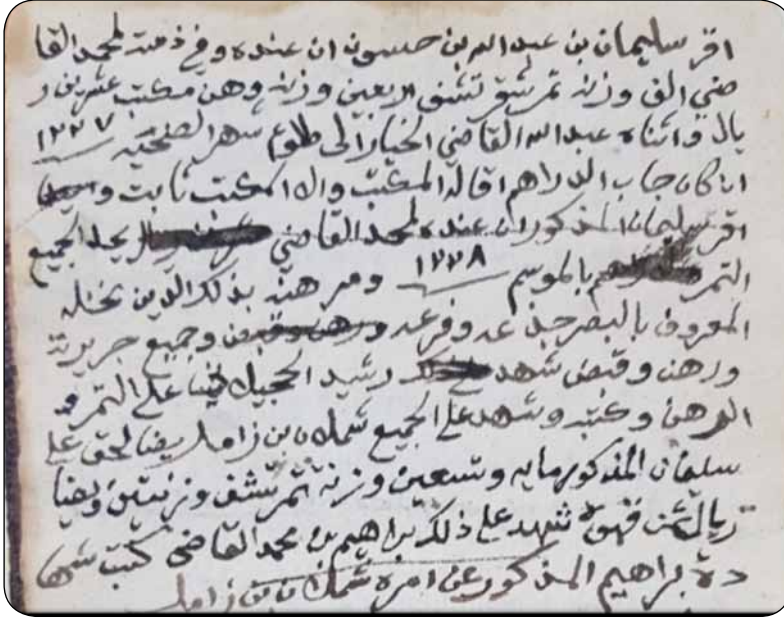 اقر سليمان بن عبدالله بن حسون ان عنده وفي ذمته لمحمد القا
ضي الف وزنه تمر شقر تشفق اربعين وزنه وهن مكتب عشرين ر
يال واثناه عبدالله القاضي الخيار الى طلوع شهر الضحيه ١٢٢٧
ان كان جاب الدراهم اقاله المكتب والا المكتب ثابت
اقر سليمان المذكور ان عنده لمحمد القاضي يحل الجميع
التمر بالموسم ١٢٢٨ ومرهنه بذلك الدين نخله
المعروف بالبصر جذعه وفرعه وجميع جريرته
ورهن وقبض شهد رشيد الحجيلان ايضا على التمر و
الرهن وكتبه وشهد على الجميع شملان بن زامل ايضا لحق على
سليمان المذكور مايه وتسعين وزنة تمر تشفق وزنتين وايضا
ريال ثمن قهوة شهد على ذلك براهيم بن محمد القاضي كتب شها
دة براهيم المذكور عن امره شملان بن زامل